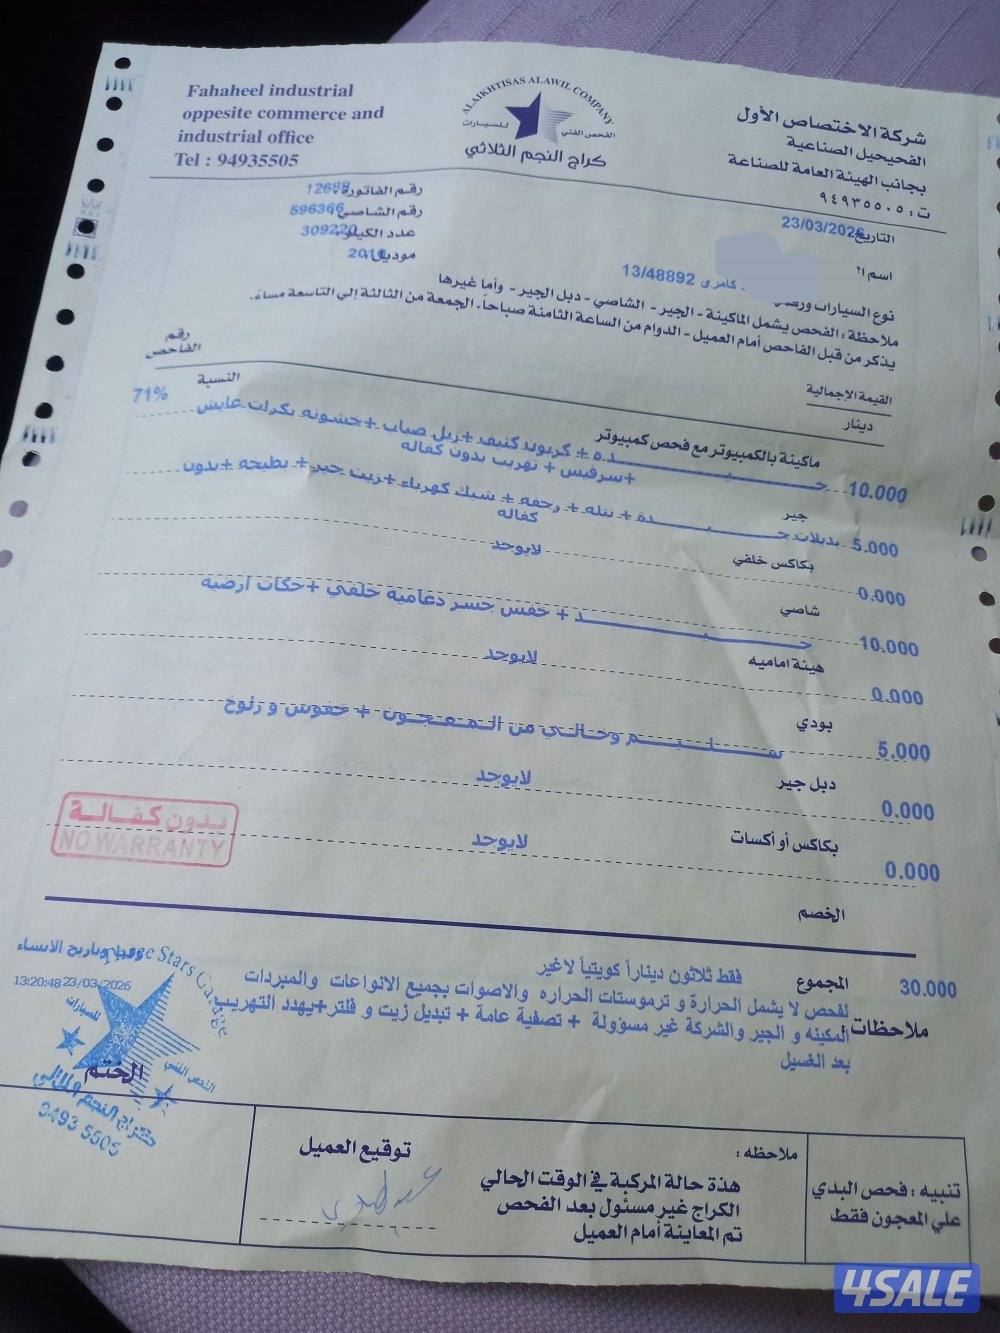 Fahaheel industrial
oppesite commerce and
industrial office
Tel : 94935505
ALAIKHTISAS ALAWIL COMPANY
الفحص الفني للسيارات
كراج النجم الثلاثي
شركة الاختصاص الأول
الفحيحيل الصناعية
بجانب الهيئة العامة للصناعة
ت : ٩٤٩٣٥٥٠٥
رقم الفاتورة: 12688
رقم الشاصي: 596366
عدد الكيلو: 309220
موديل:
التاريخ 23/03/2026
اسم
نوع السيارات كامري 13/48892
ملاحظة : الفحص يشمل الماكينة - الجير - الشاصي - دبل الجير - وأما غيرها
يذكر من قبل الفاحص أمام العميل - الدوام من الساعة الثامنة صباحاً - الجمعة من الثالثة إلى التاسعة مساء.
القيمة الإجمالية
دينار
النسبة
رقم
الفاحص
ماكينة بالكمبيوتر مع فحص كمبيوتر
71%
10.000 جـــيـــــده + كربون كثيف + ربل صباب + خشونه بكرات عايش
+سرفيس + تهريب بدون كفاله
جير
5.000 تبديلات جـــيـــــده + نتله + رجفه + شبك كهرباء +زيت جير + بطيخه +بدون
كفاله
بكاكس خلفي
0.000 لايوجد
شاصي
10.000 جـــيـــــد + خفس جسر دعاميه خلفي +حكات ارضيه
هيئة اماميه
0.000 لايوجد
بودي
5.000 ســـلـــيـــم وخـالـي من الـمـعـجـون + خفوس و رنوخ
دبل جير
0.000 لايوجد
بكاكس أو أكسات
0.000 لايوجد
بدون كفالة
NO WARRANTY
الخصم
المجموع فقط ثلاثون ديناراً كويتياً لاغير 30.000
ملاحظات: لفحص لا يشمل الحرارة و ترموستات الحراره والاصوات بجميع الانواعات والمبردات
المكينه و الجير والشركة غير مسؤولة + تصفية عامة + تبديل زيت و فلتر+يهدد التهريب
بعد الغسيل
وقت وتاريخ الانشاء
13:20:48 23/03/2026
Three Stars Garage
للسيارات
الفحص الفني
الختم
كراج النجم الثلاثي
9493 5505
توقيع العميل
ملاحظه :
هذة حالة المركبة في الوقت الحالي
الكراج غير مسئول بعد الفحص
تم المعاينة أمام العميل
تنبيه : فحص البدي
علي المعجون فقط
4SALE